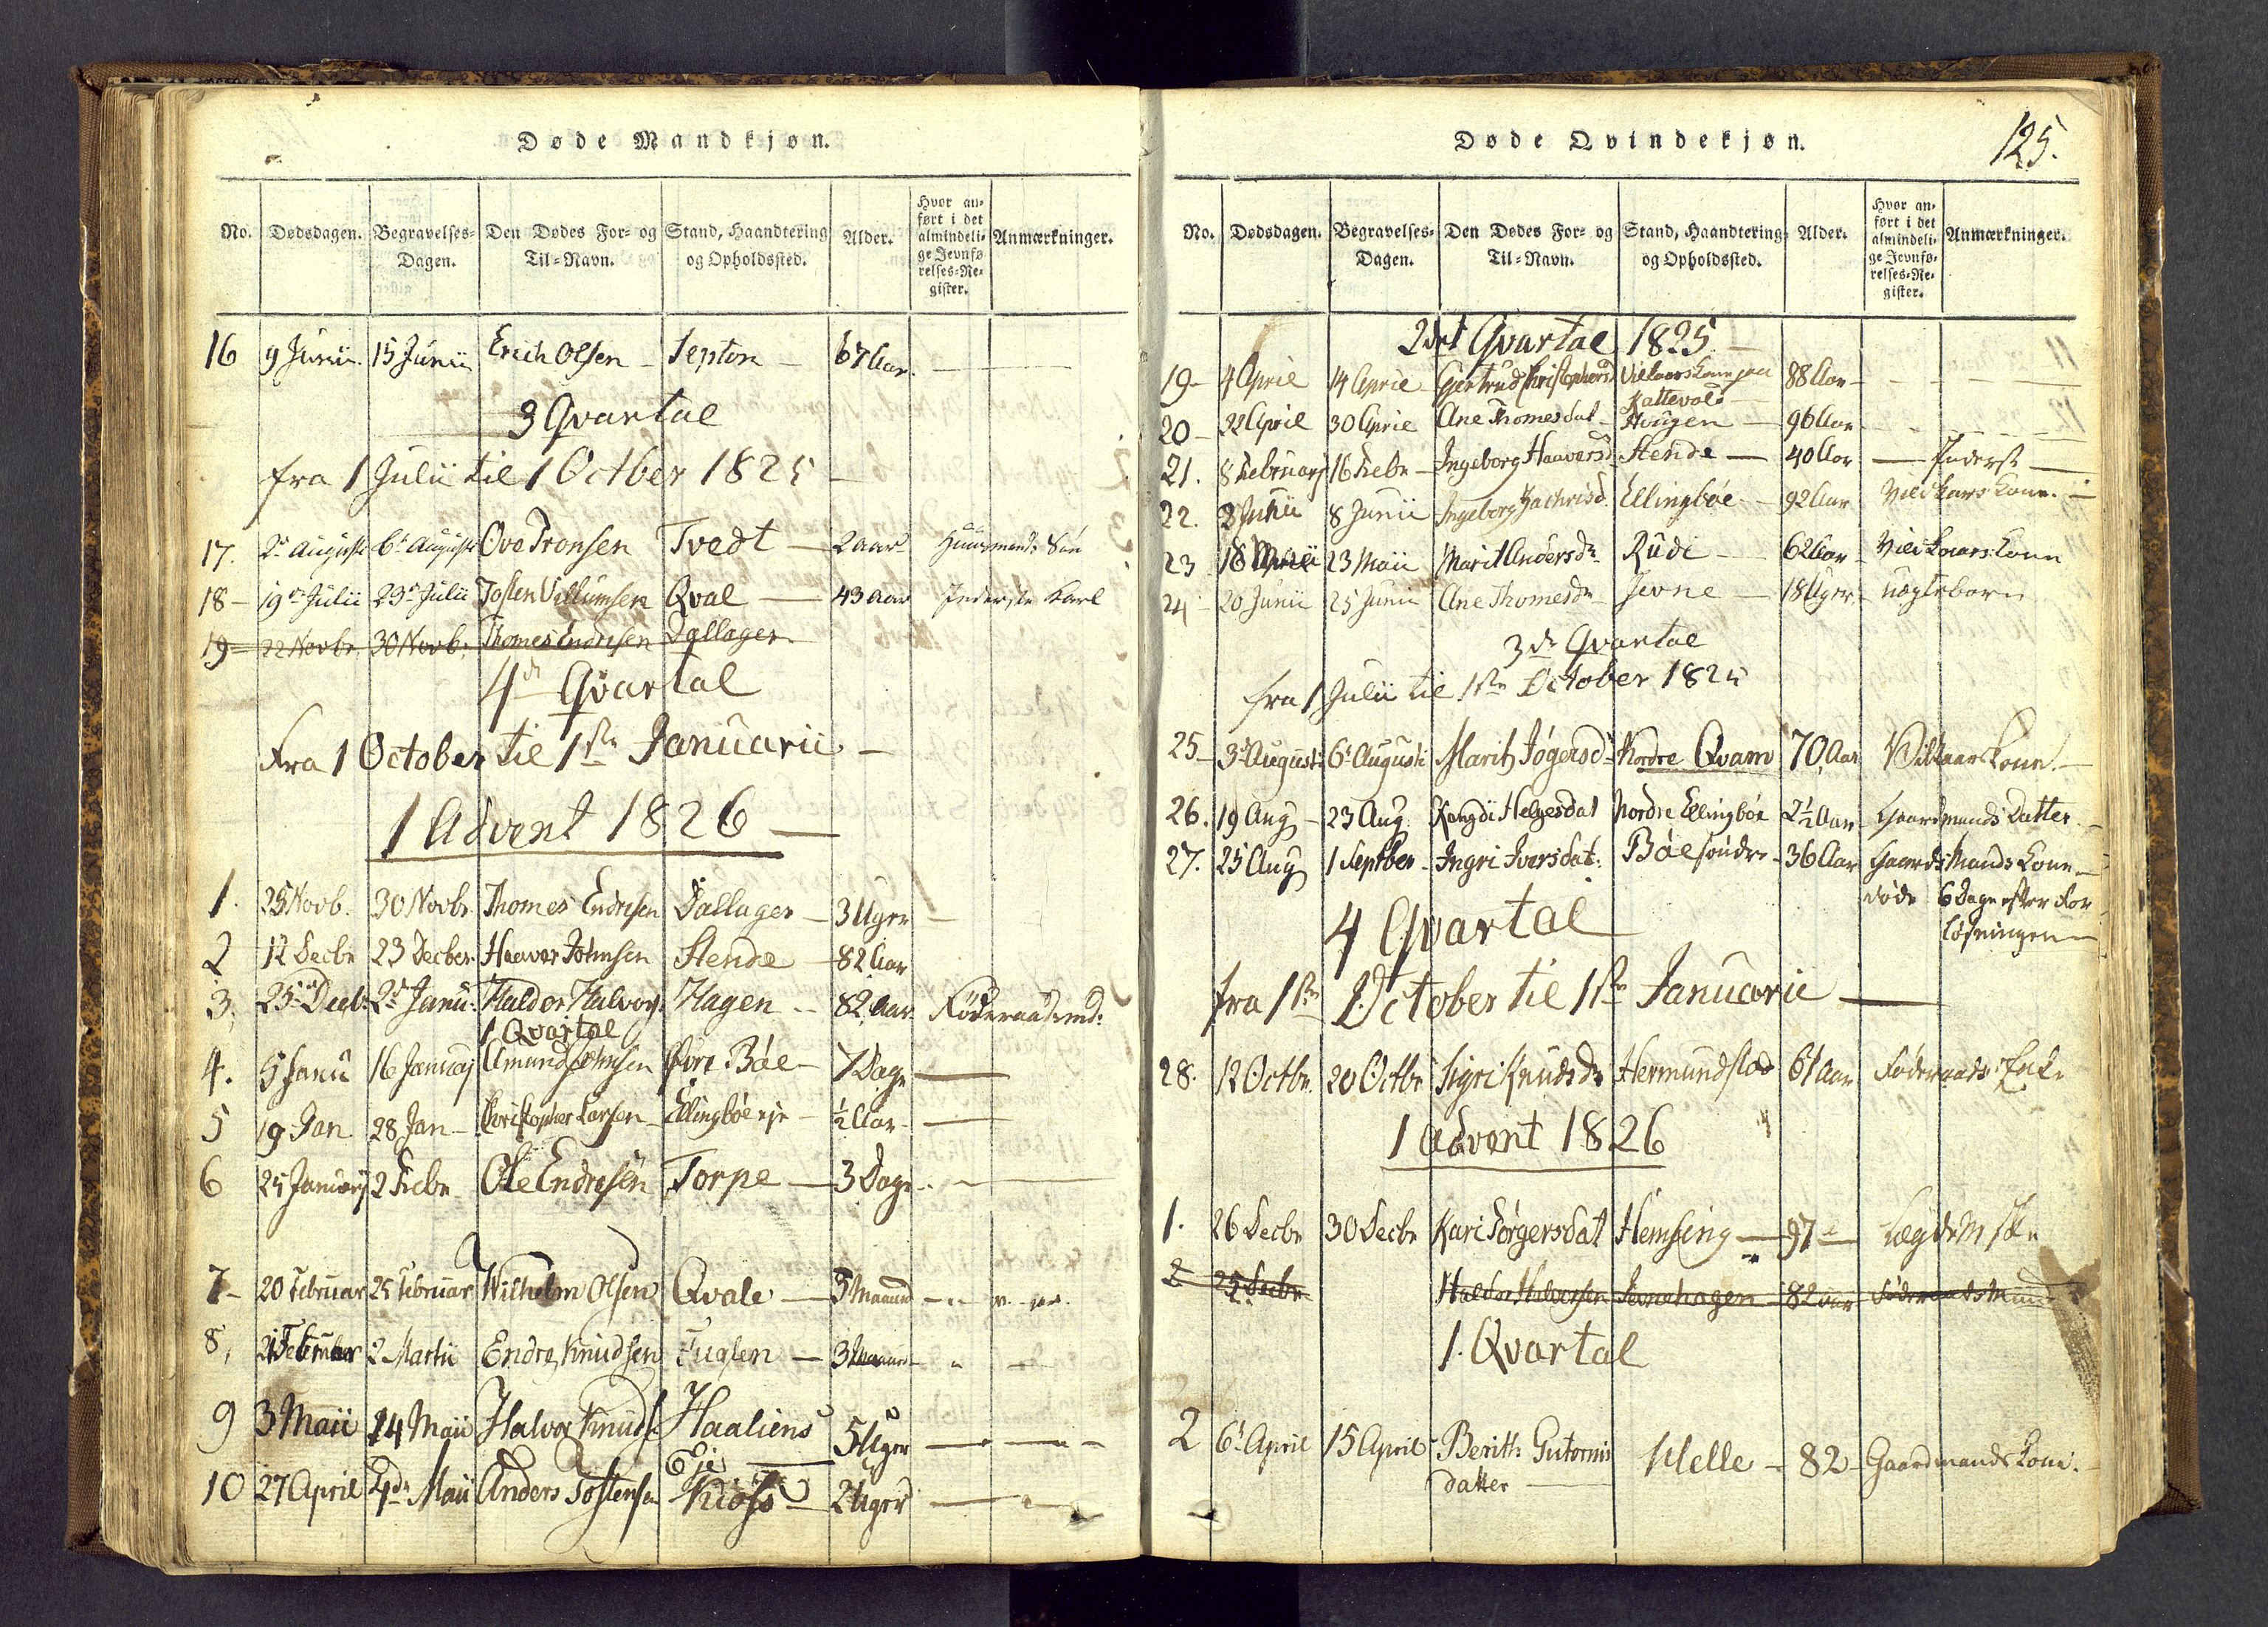 Døde Mandkjøn.
No. Dødsdagen. Begravelses-Dagen. Den Dødes For- og Til-Navn. Stand, Haandtering og Opholdssted. Alder. Hvor anført i det almindelige Jevnførelses-Register. Anmærkninger.
16 9 Junii 15 Junii Erich Olsen Septon 67 Aar
3 Qvartal
fra 1 Julii til 1 Octber 1825
17. 2 August 6 August Ove Tronsen Tvedt 2 aar Huusmands Søn
18 19 Julii 23 Julii Josten Villumsen Qval 43 aar Inderste Karl
19 22 Novbr. 30 Novb. Thomes Endresen Dallager
4de Qvartal
Fra 1 October til 1ste Januarii
1 Advent 1826
1. 25 Novb. 30 Novbr Thomes Endresen Dallager 3 Uger
2 12 Decbr 23 Decber Haavor Johnsen Stende 82 Aar
3. 25 Decb. 2 Janu: Haldor Halvors. Hagen 82 Aar
1 Qvartal
4. 9 Janu 16 Januarj Amund Øvre Bøe 7 Dage
5 19 Jan 28 Jan Christopher Larsen Ellingbøe eje ½ Aar
6 25 Januarj 2 Febr Ole Endresen Torpe 3 Dage
7 20 Februar 25 Februar Wilhelm Olsen Qvale 3 Maaned
8, 21 Februar 2 Martii Endre Knudsen Fuglen 3
9 3 Maii 14 Maii Halvor Knuds. Haaliens Eje 5 Uger
10 27 April 4de Maii Anders Tostensen 2 Uger
Døde Qvindekjøn.
125.
No. Dødsdagen. Begravelses-Dagen. Den Dødes For- og Til-Navn. Stand, Haandtering og Opholdssted. Alder. Hvor anført i det almindelige Jevnførelses-Register. Anmærkninger.
2det Qvartal 1825
19 4 April 14 April Gjertrud Christophersd Kattevold 88 Aar
20 22 April 30 April Ane Thomesdat Hougen 96 Aar
21. 8 Februarj 16 Febr Ingeborg Haavarsd Stende 40 Aar Inderst
22. 3 Junii 8 Junii Ingeborg Zachrisd. Ellingbøe 92 Aar Vilkaars Kone
23 18 23 Maii Marit Andersdr Rudi 62 Aar Vilkaars Kone
24 20 Junii 25 Junii Ane Thomesdr Jevne 18 Uger uægtebarn
3de Qvartal
fra 1 Julii til 1ste October 1825
25 3 August 6 August Marit Nordre Qvam 70 Aar Vilkaars Kone
26. 19 Aug 23 Aug. Rangdi Helgesdat Nordre Ellingbøe 2½ Aar Gaardmands Datter
27. 25 Aug 1 Septber Ingri Iversdat. Bøe søndre 36 Aar Gaardmands Kone
døde 6 Dage efter For
løsningen
4 Qvartal
fra 1ste October til 1ste Januarii
28. 12 Octbr. 20 Octbr Sigri Knudsdr Hermundstad 61 Aar Føderaads Enke
1 Advent 1826
1. 26 Decbr 30 Decbr Kari Hemsing 97
2 25 Decbr Haldor Halvorsen 82 aar Føderaads Mand
1. Qvartal
2 6 April 15 April Berith Gutorms
datter Helle 82 Gaardmands Kone